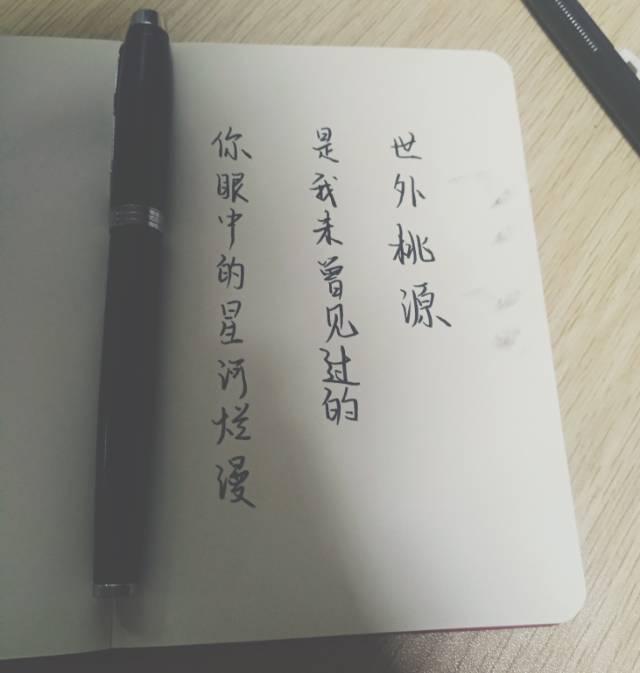 世外桃源
是我未曾见过的
你眼中的星河烂漫